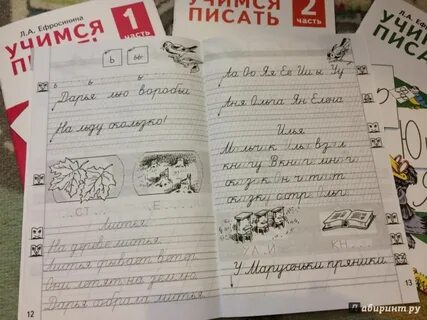 Л.А. Ефросинина
УЧИМСЯ
1
часть
ПИСАТЬ
2
часть
УЧИМСЯ
ПИСАТЬ
ь
ьь
Дарья лью воробьи
На льду скользко!
СТ
Е
Листья
На дереве листья.
Листья срывает ветер
Они летят на землю
Дарья собрала листья
12
Аа Оо Яя Ее Ии Уу
Аня Ольга Ян Елена
Илья
Мальчик Илья взял
книгу В книге много
сказок Он читает
сказку сестре Ольге
УЛ И
КН
У Марусеньки пряники
13
абиринт.ру